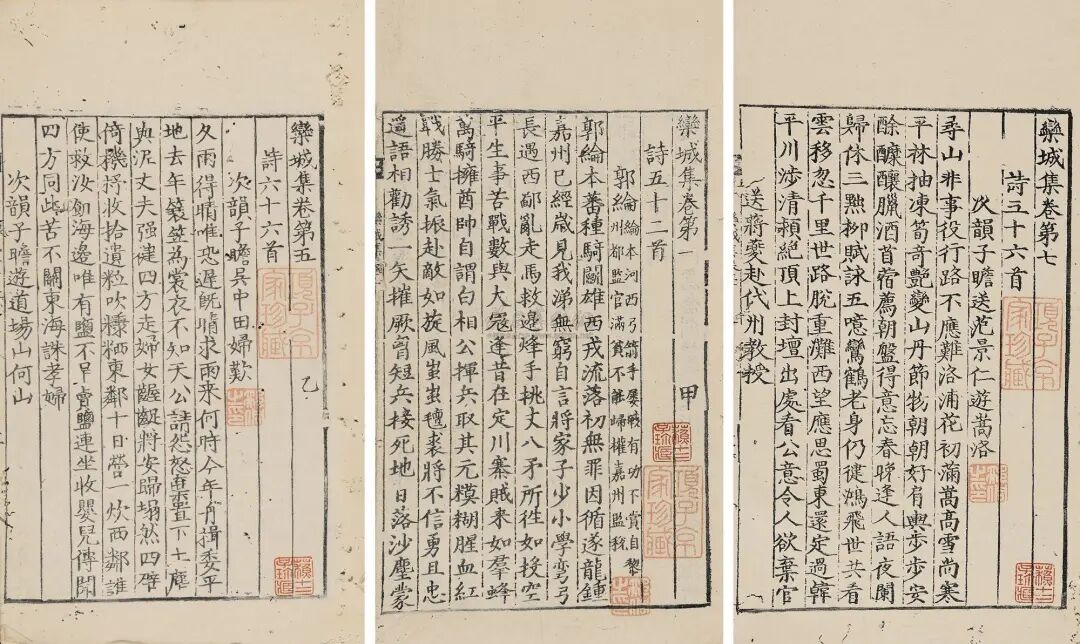 欒城集卷第五
詩六十六首 乙
次韻子瞻吳中田婦歎
久雨得晴唯恐遲既晴求雨來何時今年舟揖委平
地去年簑笠為裳衣不知天公誰怨怒棄置下土塵
與泥丈夫强健四方走婦女齷齪將安歸塌然四壁
倚機杼收拾遺粒吹糠粞東鄰十日營一炊西鄰誰
使救汝飢海邊唯有鹽不足賣鹽連坐收嬰兒傳聞
四方同此苦不關東海誅孝婦
次韻子瞻遊道場山何山
項子京家珍藏
欒城集卷第一
詩五十二首 甲
郭綸 綸本河西弓箭手屢戰有功不賞自黎
州都監官滿貧不能歸權嘉州監稅
郭綸本蕃種騎鬭雄西戎流落初無罪因循遂龍鍾
嘉州已經歲見我涕無窮自言將家子少小學彎弓
長遇西鄙亂走馬救邊烽手挑丈八矛所往如投空
平生事苦戰數與大寇逢昔在定川寨賊來如羣蜂
萬騎擁酋帥自謂白相公揮兵取其元模糊腥血紅
戰勝士氣振赴敵如旋風蚩蚩氊裘將不信勇且忠
遥語相勸誘一矢摧厥胷短兵接死地日落沙塵蒙
項子京家珍藏
欒城集卷第七
詩三十六首
次韻子瞻送范景仁遊嵩洛
尋山非事役行路不應難洛浦花初滿嵩高雪尚寒
平林抽凍筍奇艷變山丹節物朝朝好肩輿步步安
酴醾釀臘酒苜蓿薦朝盤得意忘春晚逢人語夜闌
歸休三黜柳賦詠五噫鸞鶴老身仍健鴻飛世共看
雲移忽千里世路脫重灘西望應思蜀東還定過韓
平川涉清潁絕頂上封壇出處看公意令人欲棄官
送蔣夔赴代州教授
項子京家珍藏